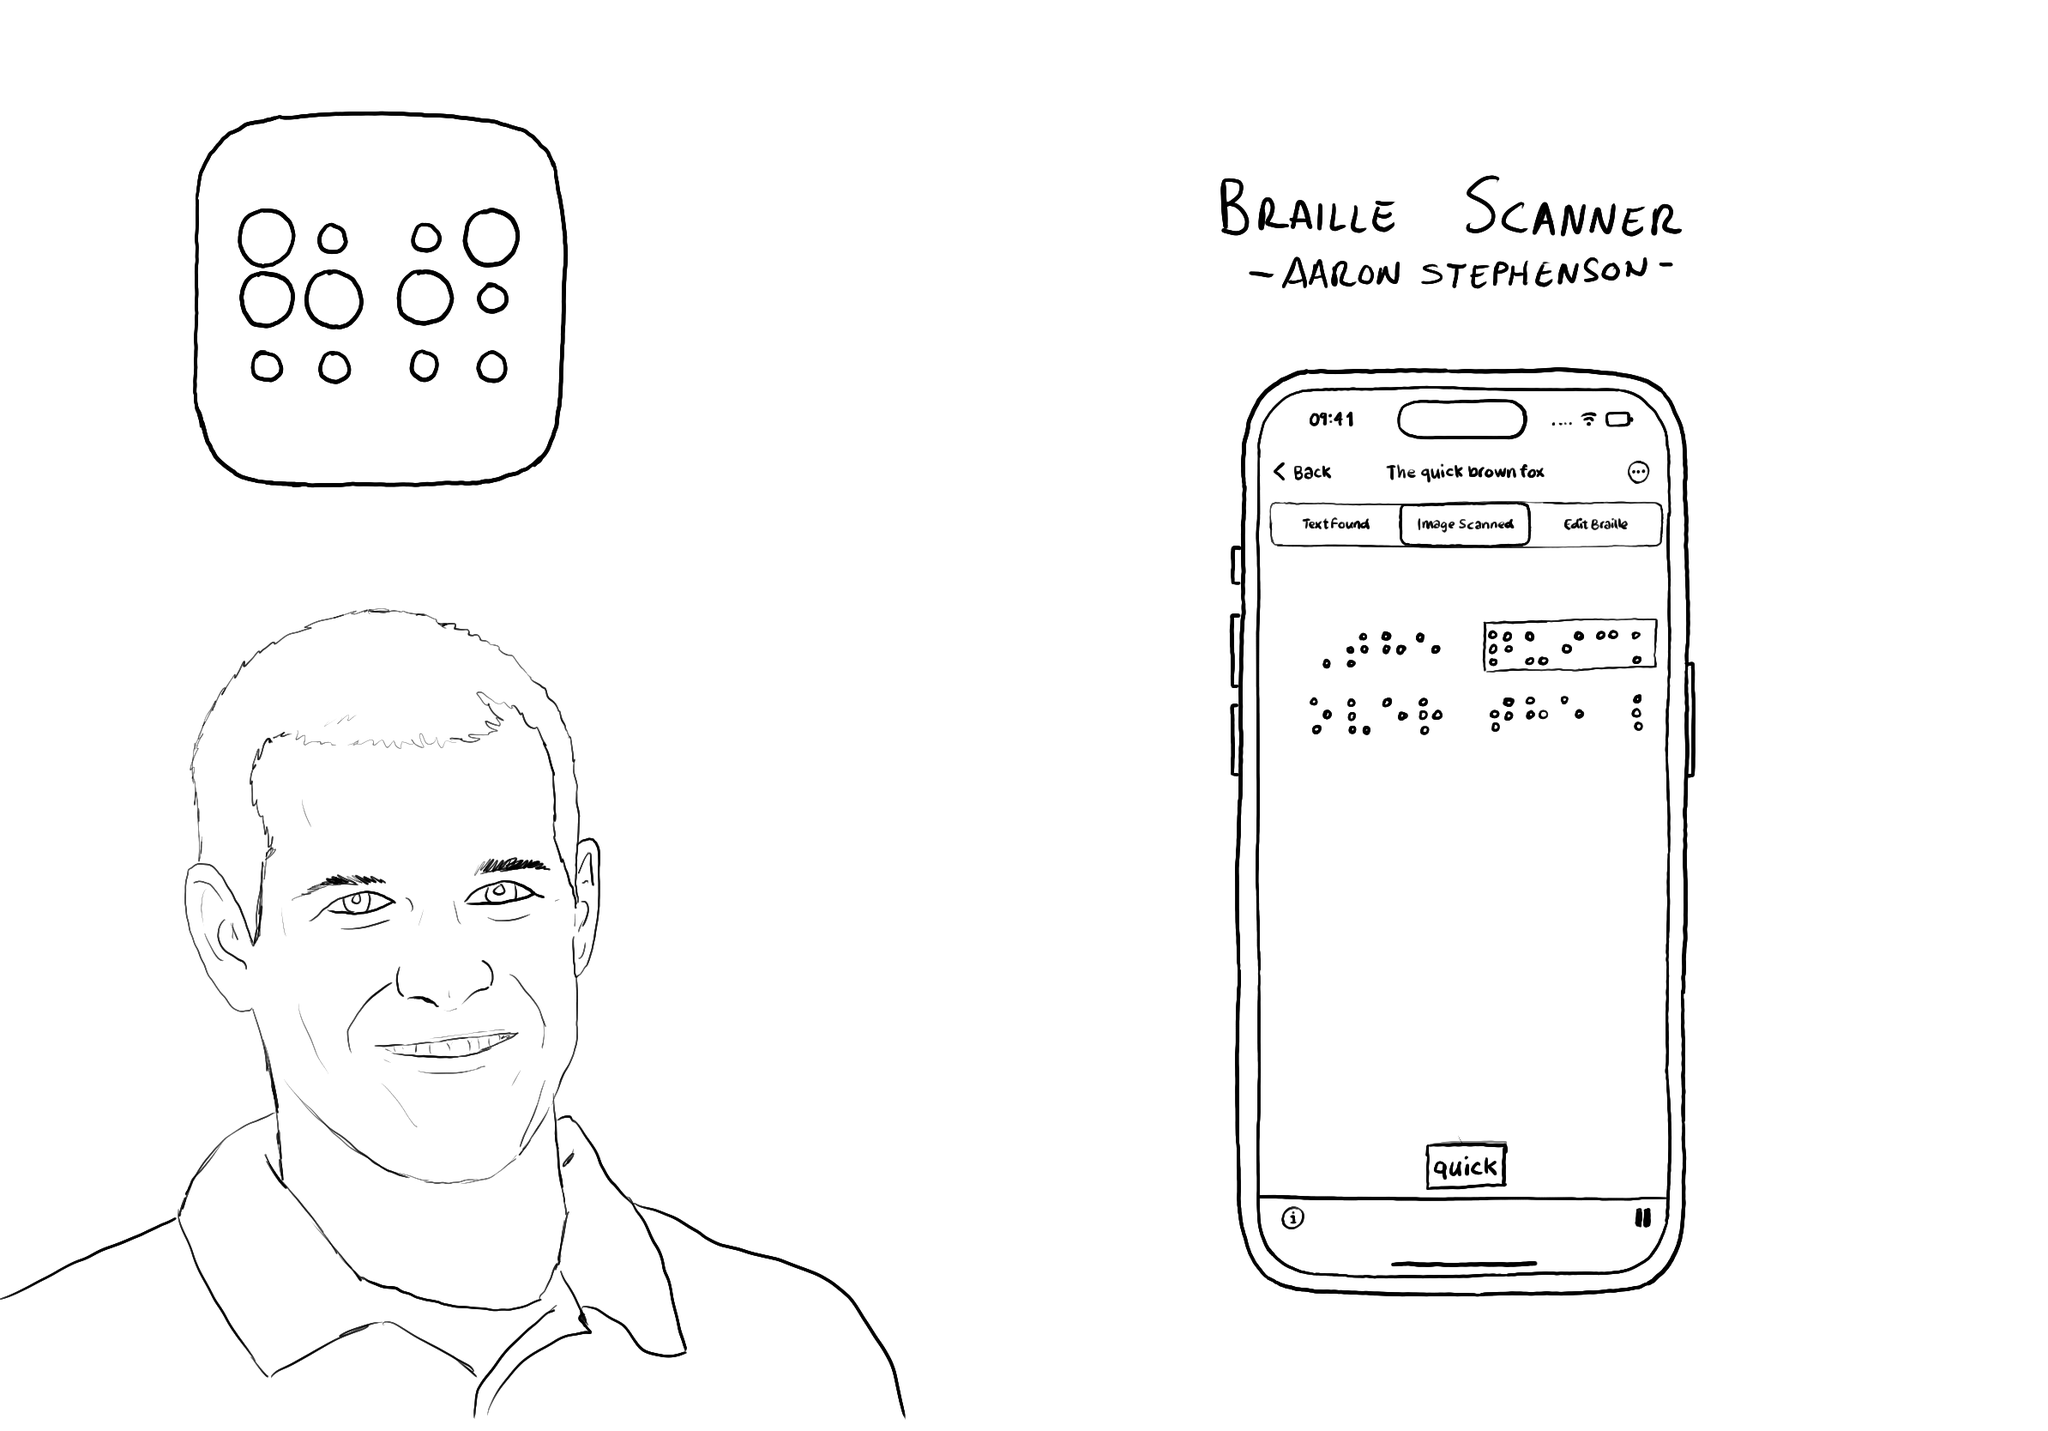 BRAILLE SCANNER
- AARON STEPHENSON -
09:41
< Back The quick brown fox
Text Found Image Scanned Edit Braille
⠠⠞⠓⠑ ⠟⠥⠊⠉⠅
⠃⠗⠕⠺⠝ ⠋⠕⠭
quick
i